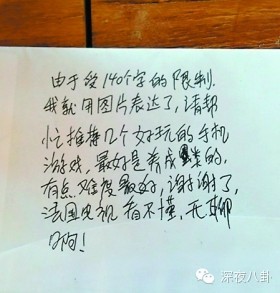 由于受140个字的限制.
我就用图片表达了,请帮
忙推荐几个好玩的手机
游戏,最好是养成类的,
有点难度最好,谢谢了,
法国电视看不懂,无聊
啊!
深夜八卦